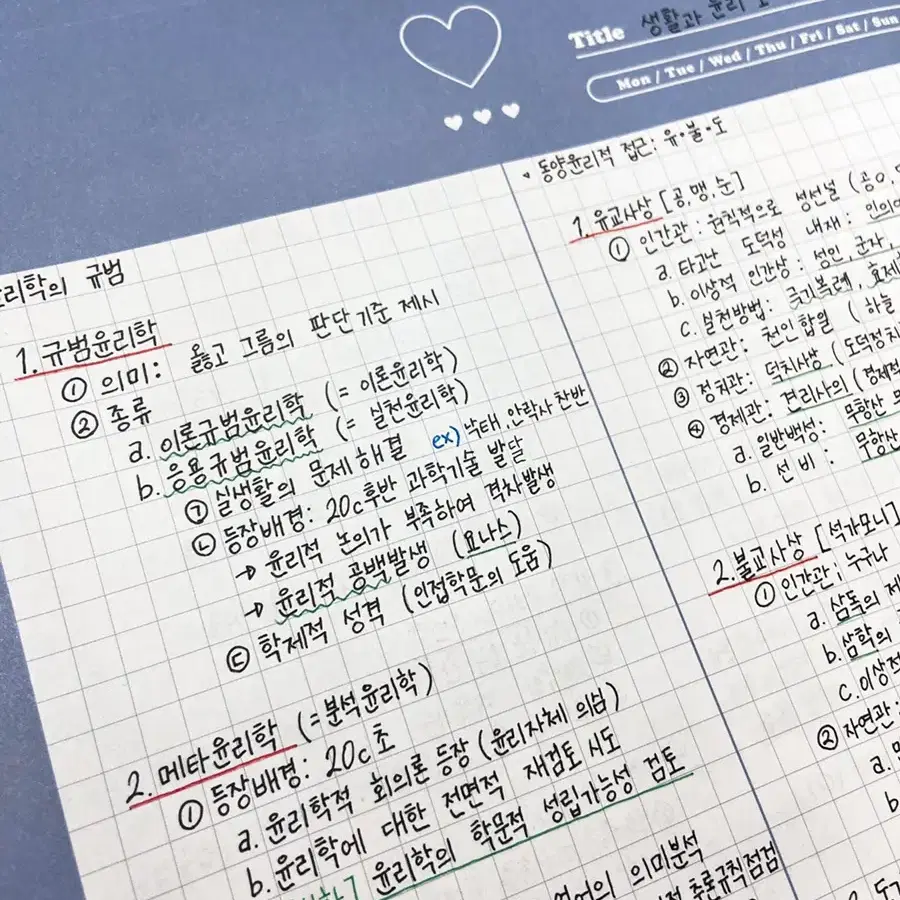 Title 생활과 윤리
Mon / Tue / Wed / Thu / Fri / Sat / Sun
윤리학의 규범
1. 규범윤리학
① 의미: 옳고 그름의 판단기준 제시
② 종류
a. 이론규범윤리학 (= 이론윤리학)
b. 응용규범윤리학 (= 실천윤리학)
㉠ 실생활의 문제해결 ex) 낙태, 안락사 찬반
㉡ 등장배경: 20c후반 과학기술 발달
→ 윤리적 논의가 부족하여 격차발생
→ 윤리적 공백발생 (요나스)
㉢ 학제적 성격 (인접학문의 도움)
2. 메타윤리학 (=분석윤리학)
① 등장배경: 20c초
a. 윤리학적 회의론 등장 (윤리자체 의심)
b. 윤리학에 대한 전면적 재검토 시도
윤리학의 학문적 성립가능성 검토
의미분석
추론규칙점검
동양윤리적 접근: 유·불·도
1. 유교사상 [공,맹,순]
① 인간관: 원칙적으로 성선설 (공
a. 타고난 도덕성 내재: 인의
b. 이상적 인간상: 성인, 군자,
c. 실천방법: 극기복례, 효제
② 자연관: 천인합일 ( 하늘
③ 정치관: 덕치사상 (도덕정치
④ 경제관: 견리사의 (경제적
a. 일반백성: 무항산
b. 선비: 무항산
2. 불교사상 [석가모니]
① 인간관; 누구나
a. 삼독의 제
b. 삼학의
c. 이상적
② 자연관:
a.
b